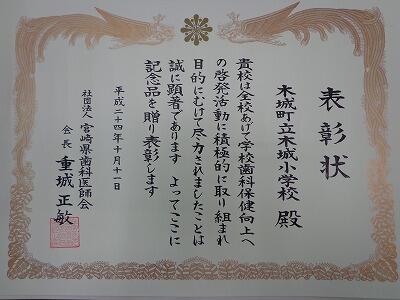 表彰状
木城町立木城小学校 殿
貴校は全校あげて学校歯科保健向上へ
の啓発活動に積極的に取り組まれ
目的にむけて尽力されましたことは
誠に顕著であります よってここに
記念品を贈り表彰します
平成二十四年十月十一日
社団法人 宮崎県歯科医師会
会長 重城正敏